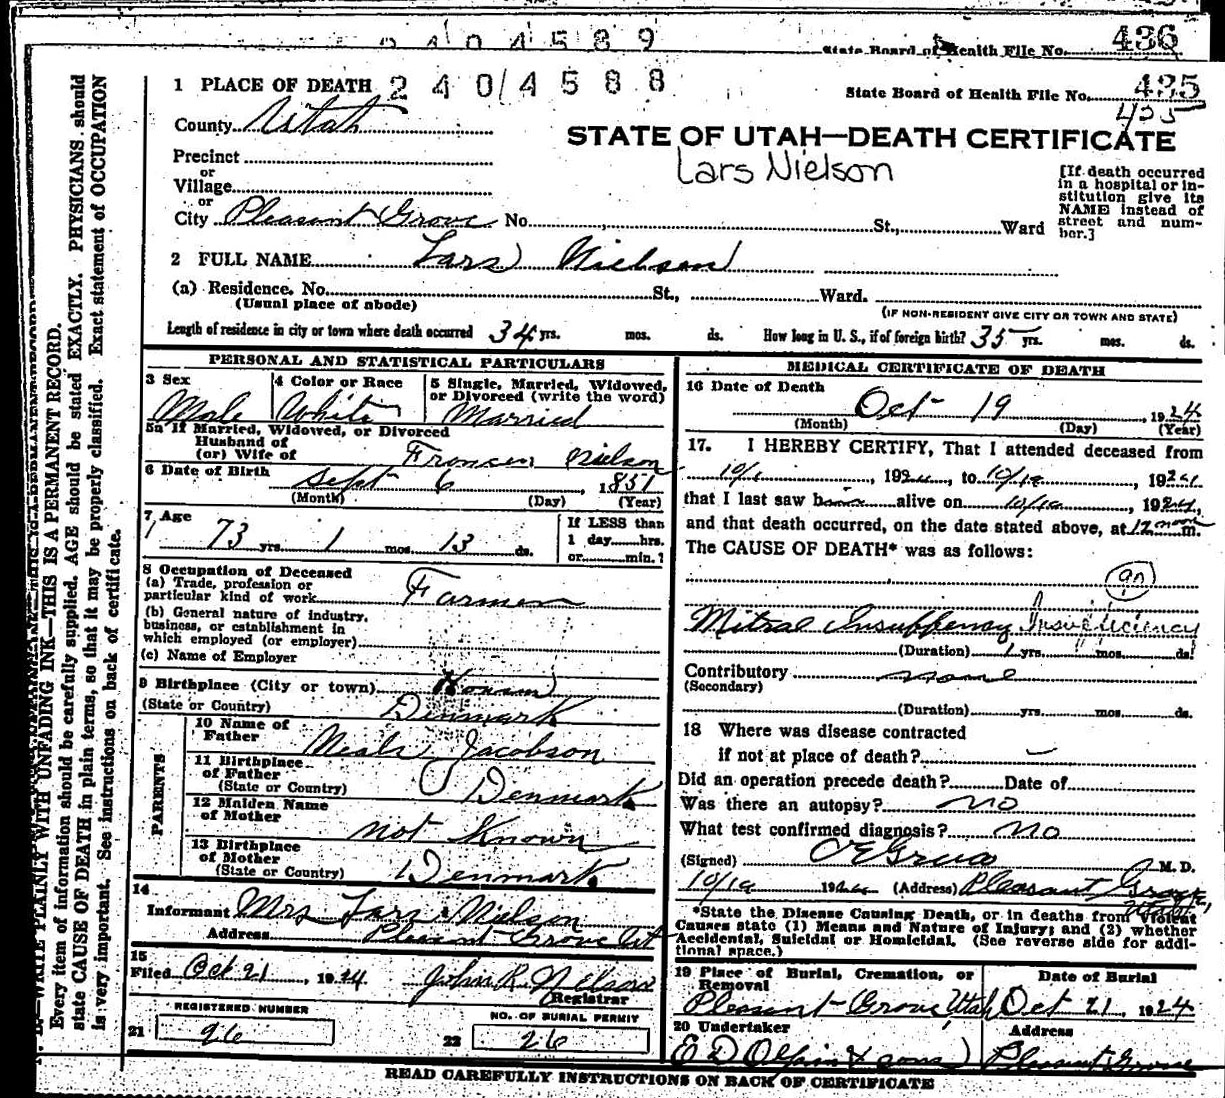 2404589
State Board of Health File No. 436
1 PLACE OF DEATH 2404588
State Board of Health File No. 435
435
County Utah
STATE OF UTAH—DEATH CERTIFICATE
Lars Nielson
Precinct
or
Village
or
City Pleasant Grove No. St., Ward
[If death occurred
in a hospital or in-
stitution give its
NAME instead of
street and num-
ber.]
2 FULL NAME Lars Nielson
(a) Residence. No. St., Ward.
(Usual place of abode)
(IF NON-RESIDENT GIVE CITY OR TOWN AND STATE)
Length of residence in city or town where death occurred 34 yrs. mos. ds. How long in U. S., if of foreign birth? 35 yrs. mos. ds.
PERSONAL AND STATISTICAL PARTICULARS
3 Sex
Male
4 Color or Race
White
5 Single, Married, Widowed,
or Divorced (write the word)
Married
5a If Married, Widowed, or Divorced
Husband of
(or) Wife of Nielson
6 Date of Birth Sept 6, 1851
(Month) (Day) (Year)
7 Age
73 yrs. 1 mos. 13 ds.
If LESS than
1 day hrs.
or min.?
8 Occupation of Deceased
(a) Trade, profession or
particular kind of work Farmer
(b) General nature of industry,
business, or establishment in
which employed (or employer)
(c) Name of Employer
9 Birthplace (City or town)
(State or Country) Denmark
PARENTS
10 Name of
Father Neals Jacobson
11 Birthplace
of Father
(State or Country) Denmark
12 Maiden Name
of Mother not Known
13 Birthplace
of Mother
(State or Country) Denmark
14
Informant Mrs Lars Nielson
Address Pleasant Grove Ut
15
Filed Oct 21, 1924 John R. Nelson
Registrar
REGISTERED NUMBER
21 26
NO. OF BURIAL PERMIT
22 26
MEDICAL CERTIFICATE OF DEATH
16 Date of Death
Oct 19, 1924
(Month) (Day) (Year)
17. I HEREBY CERTIFY, That I attended deceased from
10/1, 1924 to 10/19, 1924
that I last saw him alive on 10/19, 1924,
and that death occurred, on the date stated above, at 12 noon m.
The CAUSE OF DEATH* was as follows:
90
Mitral Insuffency Insufficiency
(Duration) 1 yrs. mos. ds.
Contributory none
(Secondary)
(Duration) yrs. mos. ds.
18 Where was disease contracted
if not at place of death?
Did an operation precede death? Date of
Was there an autopsy? no
What test confirmed diagnosis? no
(Signed) M. D.
10/19 1924 (Address) Pleasant Grove,
Utah
*State the Disease Causing Death, or in deaths from Violent
Causes state (1) Means and Nature of Injury; and (2) whether
Accidental, Suicidal or Homicidal. (See reverse side for addi-
tional space.)
19 Place of Burial, Cremation, or
Removal
Pleasant Grove, Utah
Date of Burial
Oct 21, 1924
20 Undertaker
E D Olpin & sons
Address
Pleasant Grove
READ CAREFULLY INSTRUCTIONS ON BACK OF CERTIFICATE
WRITE PLAINLY WITH UNFADING INK—THIS IS A PERMANENT RECORD.
Every item of information should be carefully supplied. AGE should be stated EXACTLY. PHYSICIANS should
state CAUSE OF DEATH in plain terms, so that it may be properly classified. Exact statement of OCCUPATION
is very important. See instructions on back of certificate.